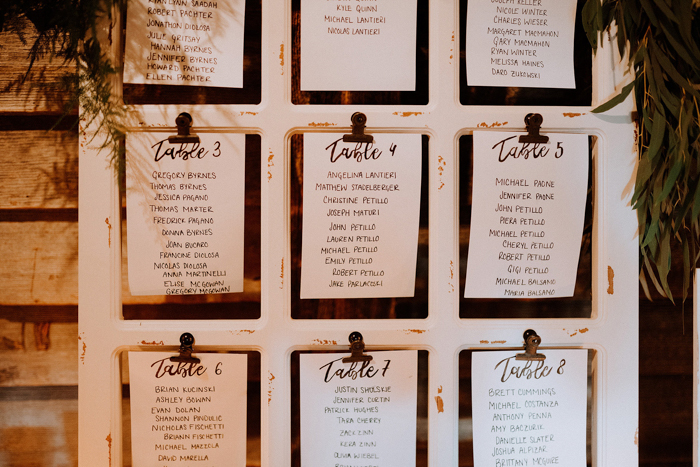 RYAN LYNN SAADAH
ROBERT PACHTER
JONATHON DIOLOSA
JULIE GRITSAY
HANNAH BYRNES
JENNIFER BYRNES
HOWARD PACHTER
ELLEN PACHTER
KYLE QUINN
MICHAEL LANTIERI
NICOLAS LANTIERI
JOSEPH KELLER
NICOLE WINTER
CHARLES WIESER
MARGARET MACMAHEN
GARY MACMAHEN
RYAN WINTER
MELISSA HAINES
DARD ZUKOWSKI
Table 3
GREGORY BYRNES
THOMAS BYRNES
JESSICA PAGANO
THOMAS MARTER
FREDRICK PAGANO
DONNA BYRNES
JOAN BUCARO
FRANCINE DIOLOSA
NICOLAS DIOLOSA
ANNA MARTINELLI
ELISE MCGOWAN
GREGORY MCGOWAN
Table 4
ANGELINA LANTIERI
MATTHEW STADELBERGER
CHRISTINE PETILLO
JOSEPH MATURI
JOHN PETILLO
LAUREN PETILLO
MICHAEL PETILLO
EMILY PETILLO
ROBERT PETILLO
JAKE PARLACOSKI
Table 5
MICHAEL PAONE
JENNIFER PAONE
JOHN PETILLO
PIERA PETILLO
MICHAEL PETILLO
CHERYL PETILLO
ROBERT PETILLO
GIGI PETILLO
MICHAEL BALSANO
MARIA BALSANO
Table 6
BRIAN KUCINSKI
ASHLEY BOWAN
EVAN DOLAN
SHANNON PINDULIC
NICHOLAS FISCHETTI
BRIANN FISCHETTI
MICHAEL MAZZELA
DAVID MARELLA
Table 7
JUSTIN SHOLSKIE
JENNIFER CURTIN
PATRICK HUGHES
TARA CHERRY
ZACK ZINN
KERA ZINN
OLIVIA WIEBEL
Table 8
BRETT CUMMINGS
MICHAEL COSTANZA
ANTHONY PENNA
AMY BACZURIK
DANIELLE SLATER
JOSHUA ALPIZAR
BRITTANY MCGUIRE